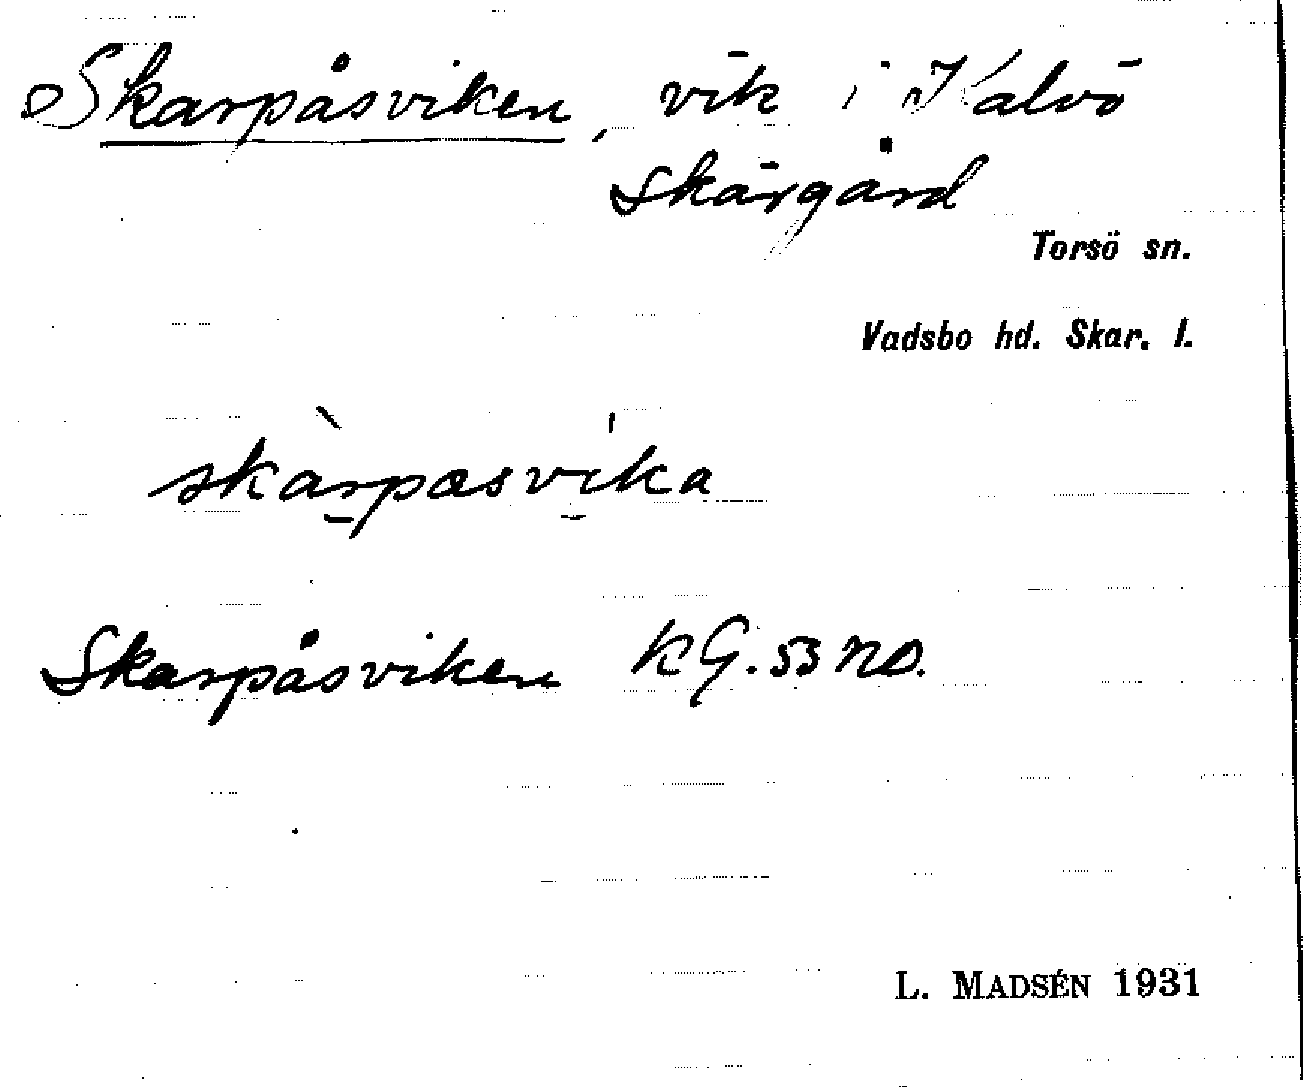 Skarpåsviken, vik i Kalvö
skärgård
Torsö sn.
Vadsbo hd. Skar. l.
skàrpasvika
Skarpåsviken KG. 53 NO.
L. MADSÉN 1931